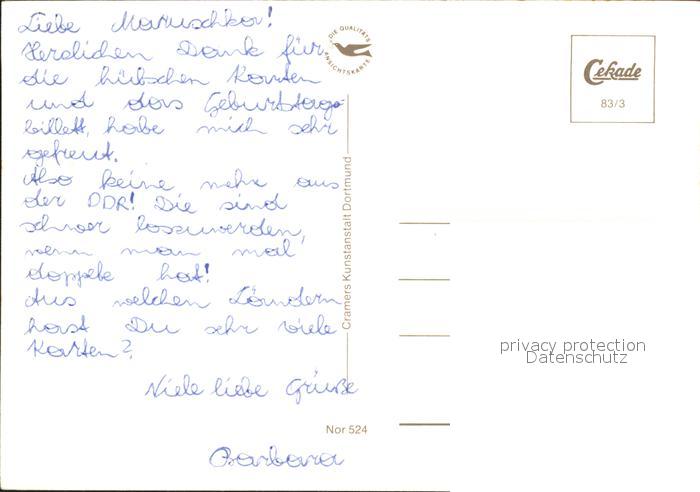 Liebe Maruschka!
Herzlichen Dank für
die hübschen Karten
und das Geburtstags-
billett, habe mich sehr
gefreut.
Also keine mehr aus
der DDR! Die sind
schwer loszuwerden,
wenn man mal
doppelte hat!
Aus welchen Ländern
hast Du sehr viele
Karten?
Viele liebe Grüße
Barbara
DIE QUALITÄTS
ANSICHTSKARTE
Cramers Kunstanstalt Dortmund
Nor 524
Cekade
83/3
privacy protection
Datenschutz